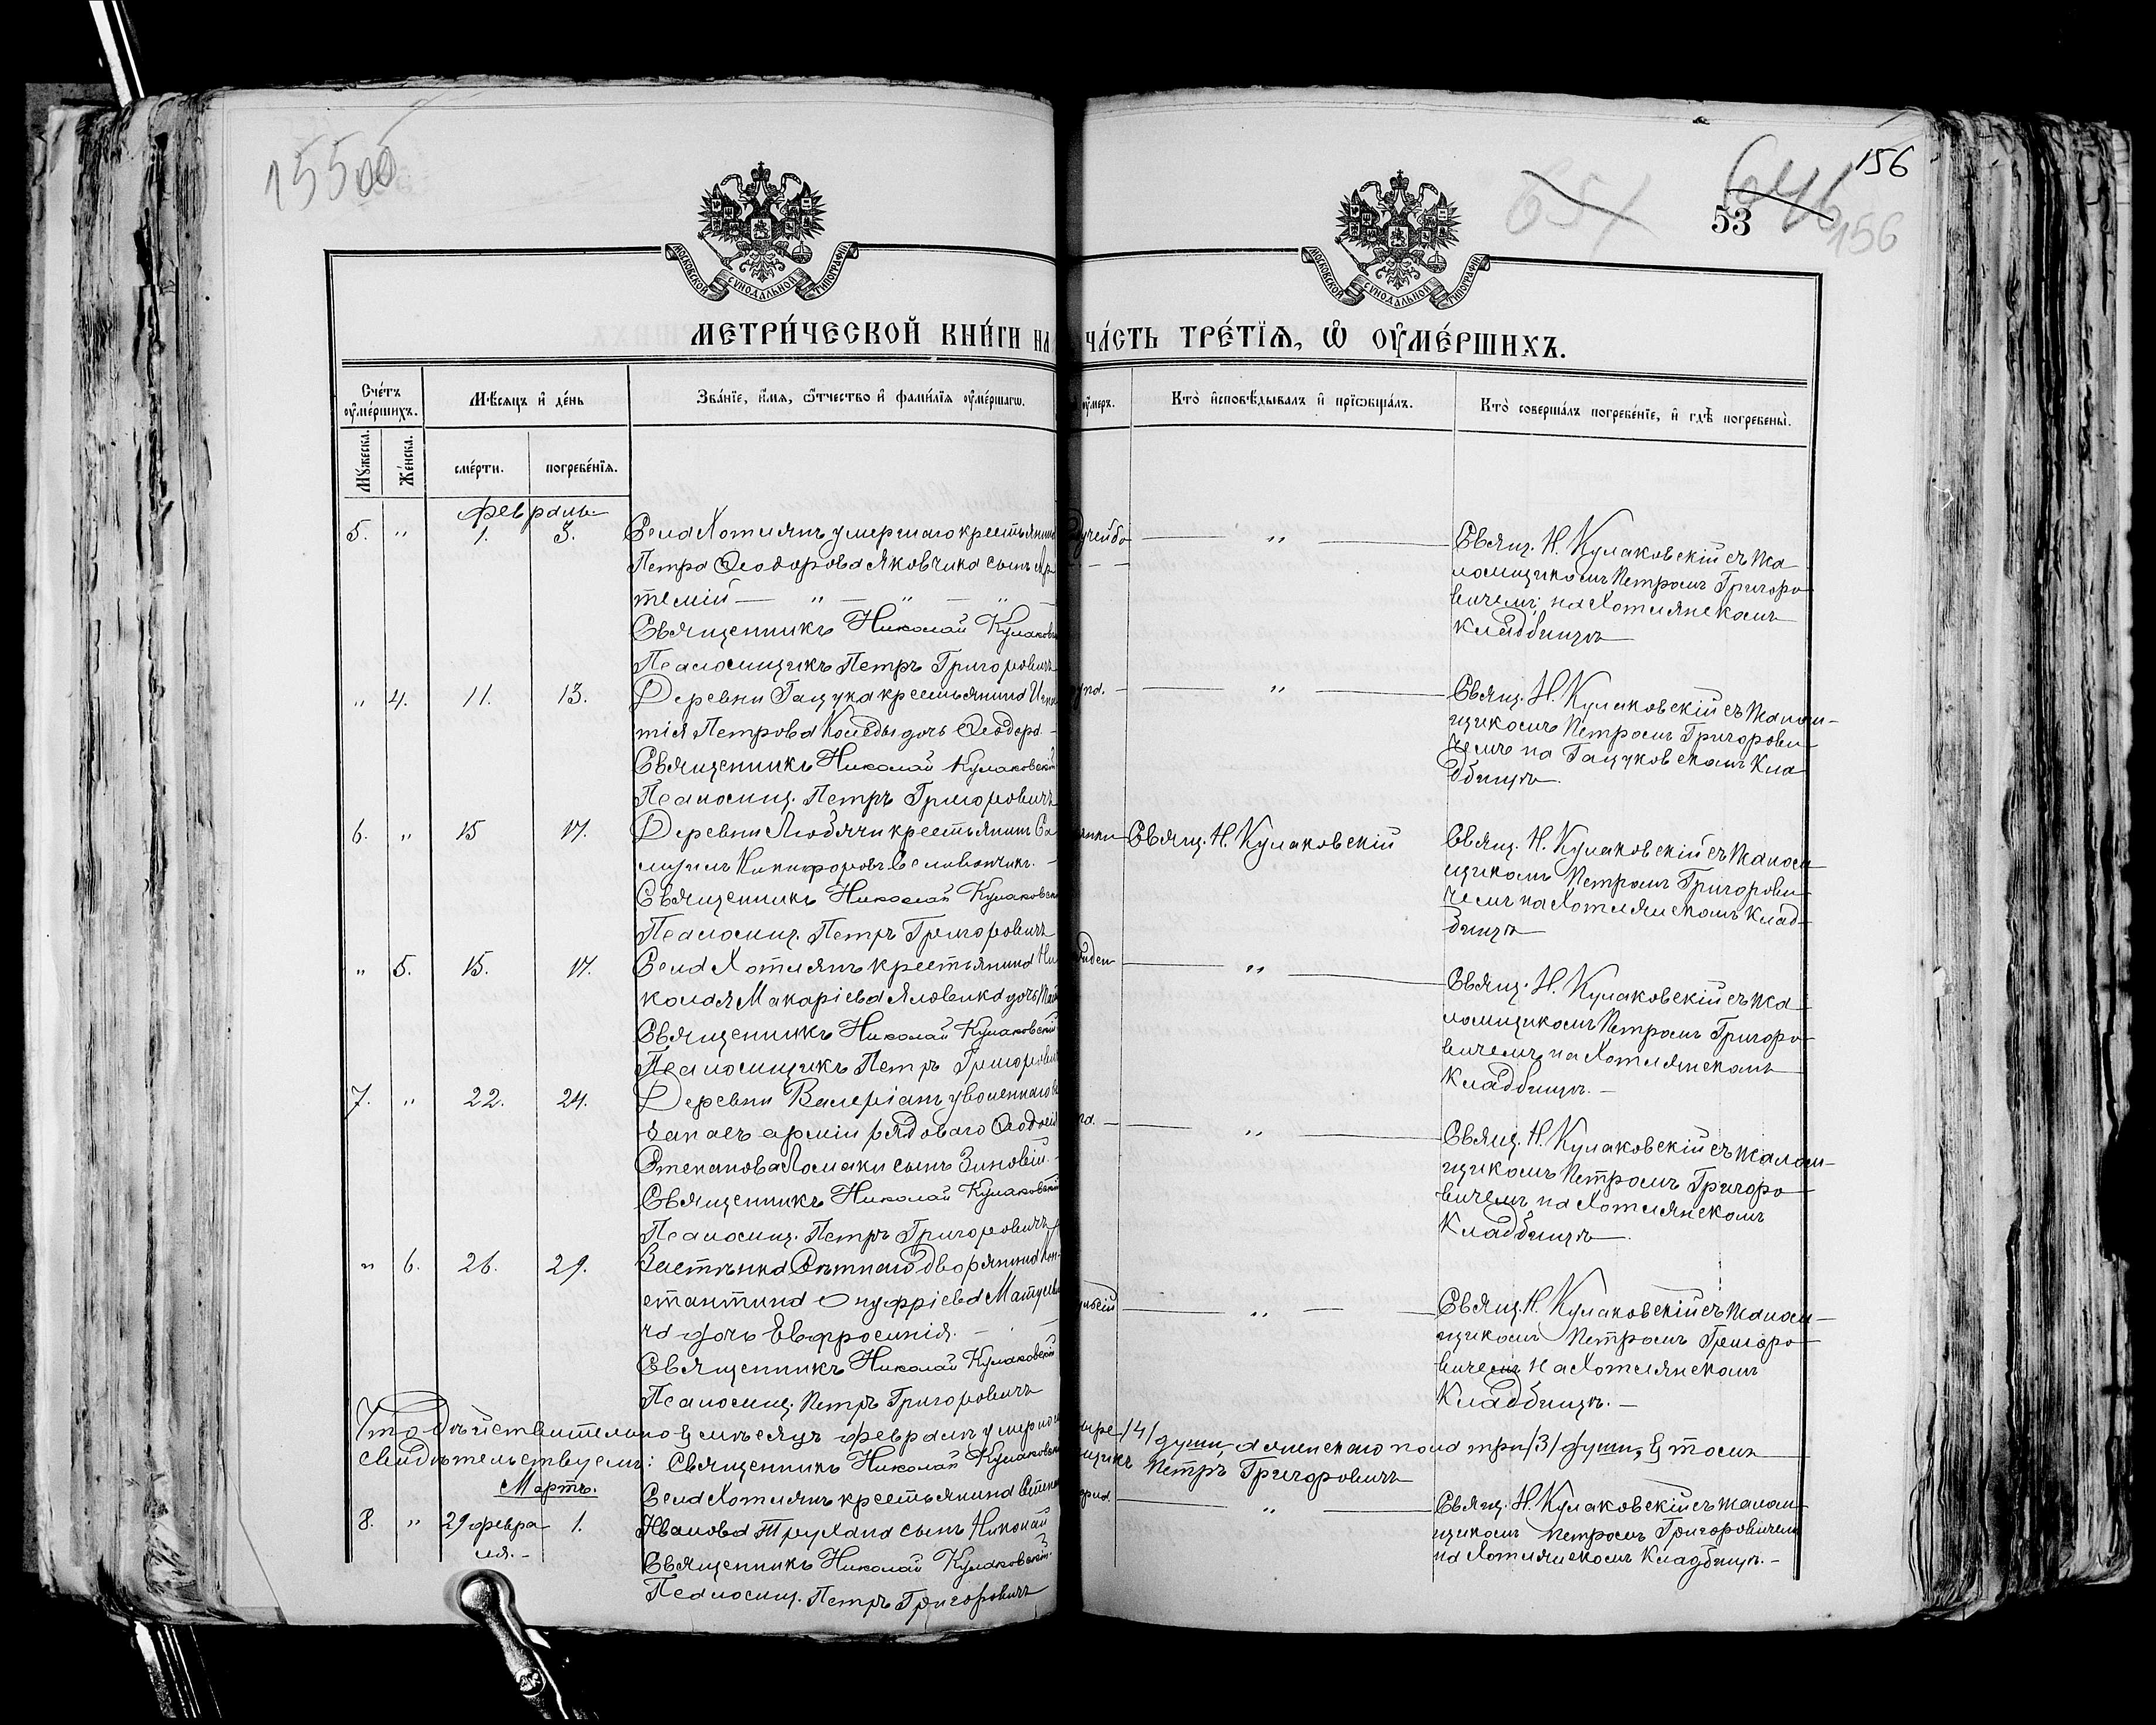 15500
156
651
646
53
156
МОСКОВСКОЙ СУНОДАЛЬНОЙ ТИПОГРАФІИ
МОСКОВСКОЙ СУНОДАЛЬНОЙ ТИПОГРАФІИ
МЕТРИ́ЧЕСКОЙ КНИ́ГИ НА
ЧА́СТЬ ТРЕ́ТЇѦ, Ѽ ОУ҆МЕ́РШИХЪ.
Сче́тъ оу҆ме́ршихъ.
Мѣсѧцъ и҆ де́нь
Зва́нїе, и҆́мѧ, ѻ҆́тчество и҆ фами́лїѧ оу҆ме́ршагѡ.
оу҆меръ.
Кто̀ и҆сповѣ́дывалъ и҆ прїѡбща́лъ.
Кто̀ соверша́лъ погребе́нїе, и҆ гдѣ̀ погребены̀.
Мꙋжеска.
Же́нска.
сме́рти.
погребе́нїѧ.
Февраль
5. " 1. 3. Села Хотлянъ умершаго крестьянина
Петра Ѳеодорова Яковчика сынъ Ар
темій — " — " — " —
Священникъ Николай Кулаковск
Псаломщикъ Петръ Григоровичъ
— " —
Свящ. Н. Кулаковскій съ Пса
ломщикомъ Петромъ Григоро
вичемъ, на Хотлянскомъ
кладбищѣ
" 4. 11. 13. Деревни Гацука крестьянина Игна
тія Петрова дочь Ѳеодора -
Священникъ Николай Кулаковскій
Псаломщ. Петръ Григоровичъ
— " —
Свящ. Н. Кулаковскій съ Псалом-
щикомъ Петромъ Григорови
чемъ на Гацуковскомъ Кла
дбищѣ.
6. " 15 17. Деревни Любячи крестьянинъ Са
муилъ Никифоровъ -
Священникъ Николай Кулаковск
Псаломщ. Петръ Григоровичъ
Свящ. Н. Кулаковскій
Свящ. Н. Кулаковскій съ Псалом
щикомъ Петромъ Григорови
чемъ на Хотлянскомъ Клад-
бищѣ
" 5. 15. 17. Села Хотлянъ крестьянина Ни
колая Макаріева Яловика дочь
Священникъ Николай Кулаковскій
Псаломщикъ Петръ Григорович
— " —
Свящ. Н. Кулаковскій съ Пса
ломщикомъ Петромъ Григоро
вичемъ, на Хотлянскомъ
Кладбищѣ. —
7. " 22. 24. Деревни Валеріанъ уволеннаго въ
запасъ арміи рядоваго Ѳеодосія
Степанова Ломаки сынъ Зиновій. -
Священникъ Николай Кулаковскій
Псаломщ. Петръ Григоровичъ
— " —
Свящ. Н. Кулаковскій съ Псалом-
щикомъ Петромъ Григоро
вичемъ на Хотлянскомъ
Кладбищѣ.
" 6. 26. 29. Застѣнка дворянина Кон-
стантина Онуфріева
дочь Евфросинія. —
Священникъ Николай Кулаковскій
Псаломщ. Петръ Григоровичъ
— " —
Свящ. Н. Кулаковскій съ Псалом-
щикомъ Петромъ Григоро
вичемъ на Хотлянскомъ
Кладбищѣ. —
Что дѣйствительно въ мѣсяцѣ февралѣ умерло
ыре /4/ души, а женскаго пола три /3/ души, въ томъ
свидѣтельствуемъ: Священникъ Николай Кулаковск
щикъ Петръ Григоровичъ
Мартъ.
8. " 29 февра 1.
ля. -
Села Хотлянъ крестьянина Степана
Иванова Трухана сынъ Николай
Священникъ Николай Кулаковскій.
Псаломщ. Петръ Григоровичъ
— " —
Свящ. Н. Кулаковскій съ Псалом-
щикомъ Петромъ Григоровичемъ
на Хотлянскомъ Кладбищѣ. -